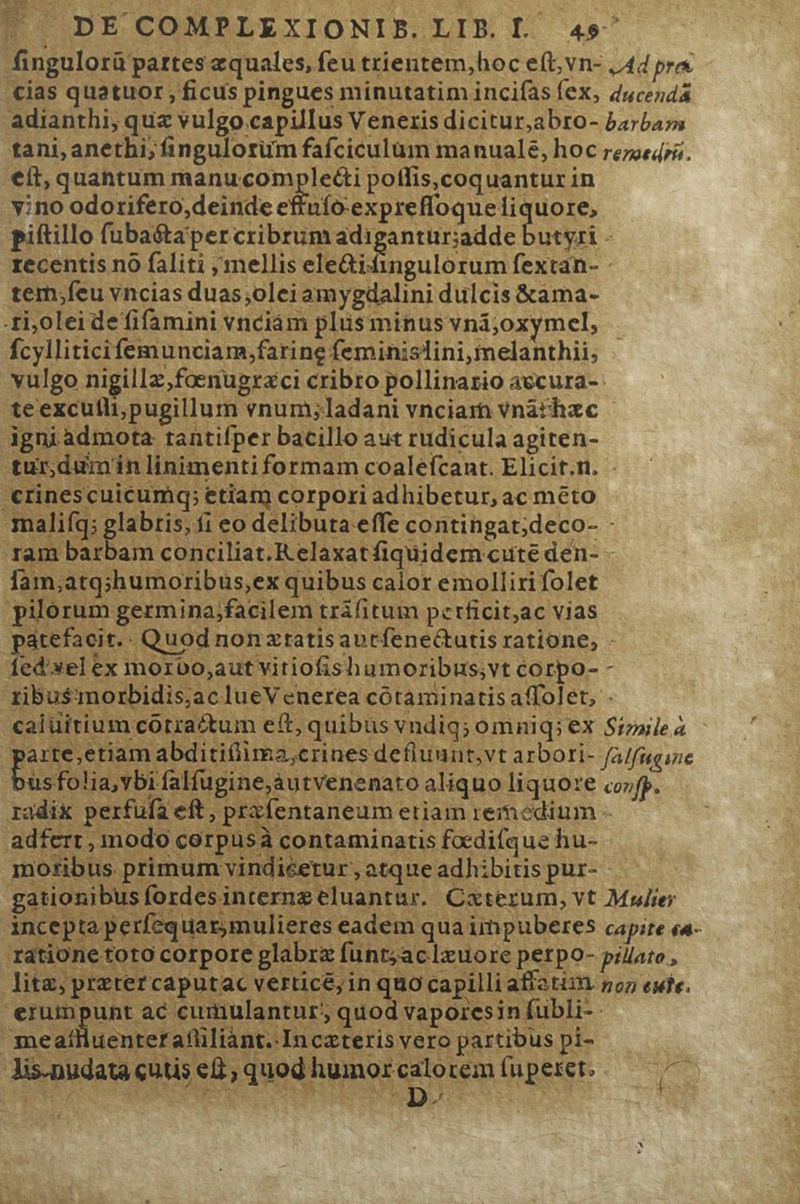 DE COMPLEXIONIB. LIB. I. 49
ſingulorū partes æquales, ſeu trientem,hoc eſt,vn- Ad pro
cias quatuor, ficus pingues minutatim inciſas ſex, ducendā
adianthi, quæ vulgo capillus Veneris dicitur,abro- barbam
tani, anethi, ſingulorum faſciculum manualē, hoc remediū.
eſt, quantum manu complecti poſſis,coquantur in
vino odorifero,deinde effuſo expreſſoque liquore,
piſtillo ſubacta per cribrum adigantur;adde butyri
recentis nō ſaliti, mellis electi ſingulorum ſextan-
tem,ſeu vncias duas,olei amygdalini dulcis &ama-
ri,olei de ſiſamini vnciam plus minus vnā,oxymel,
ſcyllitici ſemunciam,farinę ſeminis lini,melanthii,
vulgo nigillæ,fœnugræci cribro pollinario accura-
te excuſſi,pugillum vnum, ladani vnciam vnā: hæc
igni admota tantiſper bacillo aut rudicula agiten-
tur,dum in linimenti formam coaleſcant. Elicit.n.
crines cuicumq; etiam corpori adhibetur, ac mēto
maliſq; glabris, ſi eo delibuta eſſe contingat,deco-
ram barbam conciliat.Relaxat ſiquidem cutē den-
ſam,atq;humoribus,ex quibus calor emolliri ſolet
pilorum germina,facilem trāſitum perficit,ac vias
patefacit. Quod non ætatis aut ſenectutis ratione,
ſed vel ex morbo,aut vitioſis humoribus,vt corpo-
ribus morbidis,ac lue Venerea cōtaminatis aſſolet,
caluitium cōtractum eſt, quibus vndiq; omniq; ex Simile à
parte,etiam abditiſſima,crines defluunt,vt arbori- ſalſugine
bus folia,vbi ſalſugine,aut venenato aliquo liquore conſp.
radix perfuſa eſt, præſentaneum etiam remedium
adfert, modo corpus à contaminatis fœdiſque hu-
moribus primum vindicetur, atque adhibitis pur-
gationibus ſordes internæ eluantur. Cæterum, vt Mulier
incepta perſequar,mulieres eadem qua impuberes capite ca-
ratione toto corpore glabræ ſunt, ac læuore perpo- pillato,
litæ, præter caput ac verticē, in quo capilli affatim non cute.
erumpunt ac cumulantur, quod vapores in ſubli-
me affluenter aſſiliant. In cæteris vero partibus pi-
lis nudata cutis eſt, quod humor calorem ſuperet.
D